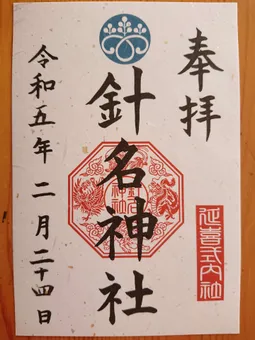 奉拝
延喜式内社
針名神社
令和五年二月二十四日